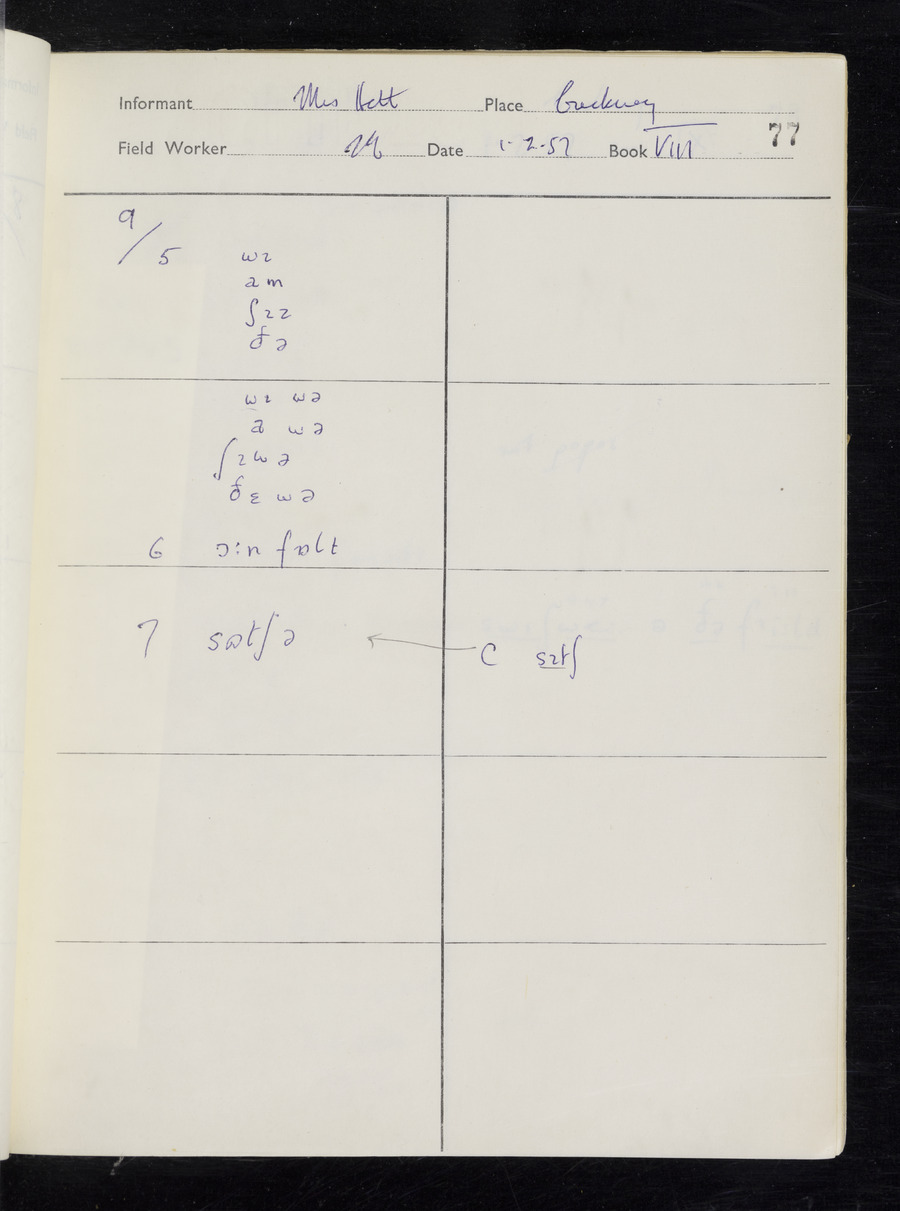 Informant Mrs Hett Place Cuckney
Field Worker Date 1.2.57 Book VIII 77
9/5 wɪ
am
ʃɪz
ðə
wɪ wə
a wə
ʃɪ wə
ðɛ wə
6 ɔːn fɒlt
7 sɒtʃ ə
C sɪtʃ